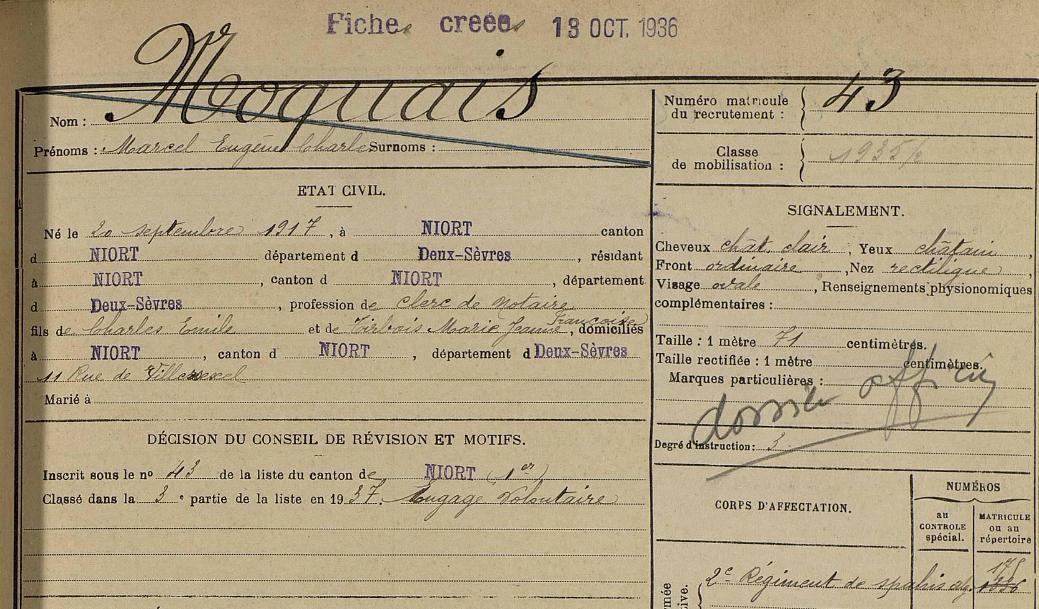 Fiches creées 13 OCT. 1936
Moquais
Nom :
Prénoms : Marcel Eugène Charles Surnoms :
Numéro matricule du recrutement : 43
Classe de mobilisation : 1935/
ETAT CIVIL.
Né le 20 septembre 1917, à NIORT canton
d NIORT département d Deux-Sèvres, résidant
à NIORT, canton d NIORT, département
d Deux-Sèvres, profession de clerc de notaire
fils de Charles Emile et de Marie Jeanne Françoise, domiciliés
à NIORT, canton d NIORT, département d Deux-Sèvres
11 Rue de Villersexel
Marié à
DÉCISION DU CONSEIL DE RÉVISION ET MOTIFS.
Inscrit sous le no 43 de la liste du canton de NIORT (1er)
Classé dans la 3e partie de la liste en 1937. Engagé Volontaire
SIGNALEMENT.
Cheveux chât. clair, Yeux châtain,
Front ordinaire, Nez rectiligne,
Visage ovale, Renseignements physionomiques
complémentaires :
Taille : 1 mètre 71 centimètres.
Taille rectifiée : 1 mètre centimètres.
Marques particulières :
dossier officier
Degré d'instruction : 3
CORPS D'AFFECTATION.
NUMÉROS
au CONTROLE spécial.
MATRICULE ou au répertoire
2e Régiment de spahis alg.